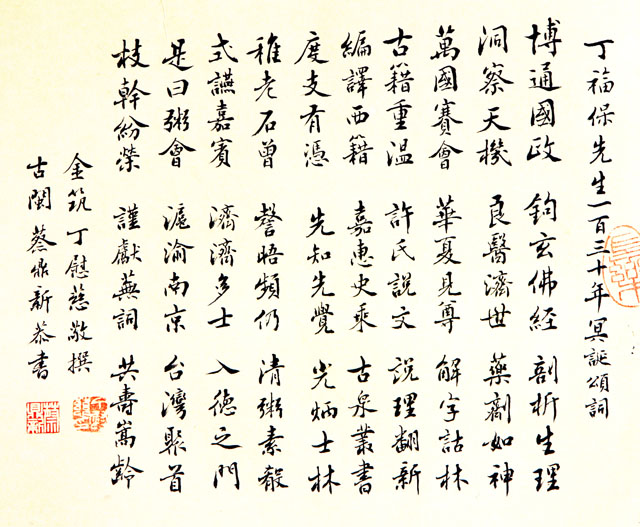 丁福保先生一百三十年冥誕頌詞
博通國政 鉤玄佛經 剖析生理
洞察天機 良醫濟世 藥劑如神
萬國賽會 華夏見尊 解字詁林
古籍重溫 許氏說文 說理翻新
編譯西籍 嘉惠史乘 古泉叢書
度支有憑 先知先覺 光炳士林
稚老石曾 謦晤頻仍 清粥素殽
式讌嘉賓 濟濟多士 入德之門
是曰粥會 滬渝南京 台灣聚首
枝幹紛榮 謹獻蕪詞 共壽嵩齡
金筑丁慰慈敬撰
古閩蔡鼎新恭書